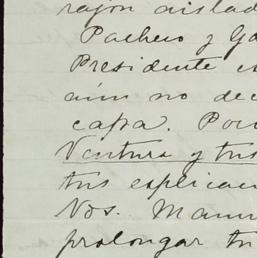 razon aislad
Pacheco y Go
Presidente e
aún no dec
capa. Por
Ventura y tus
tus explica
Nos. Manu
prolongar tu